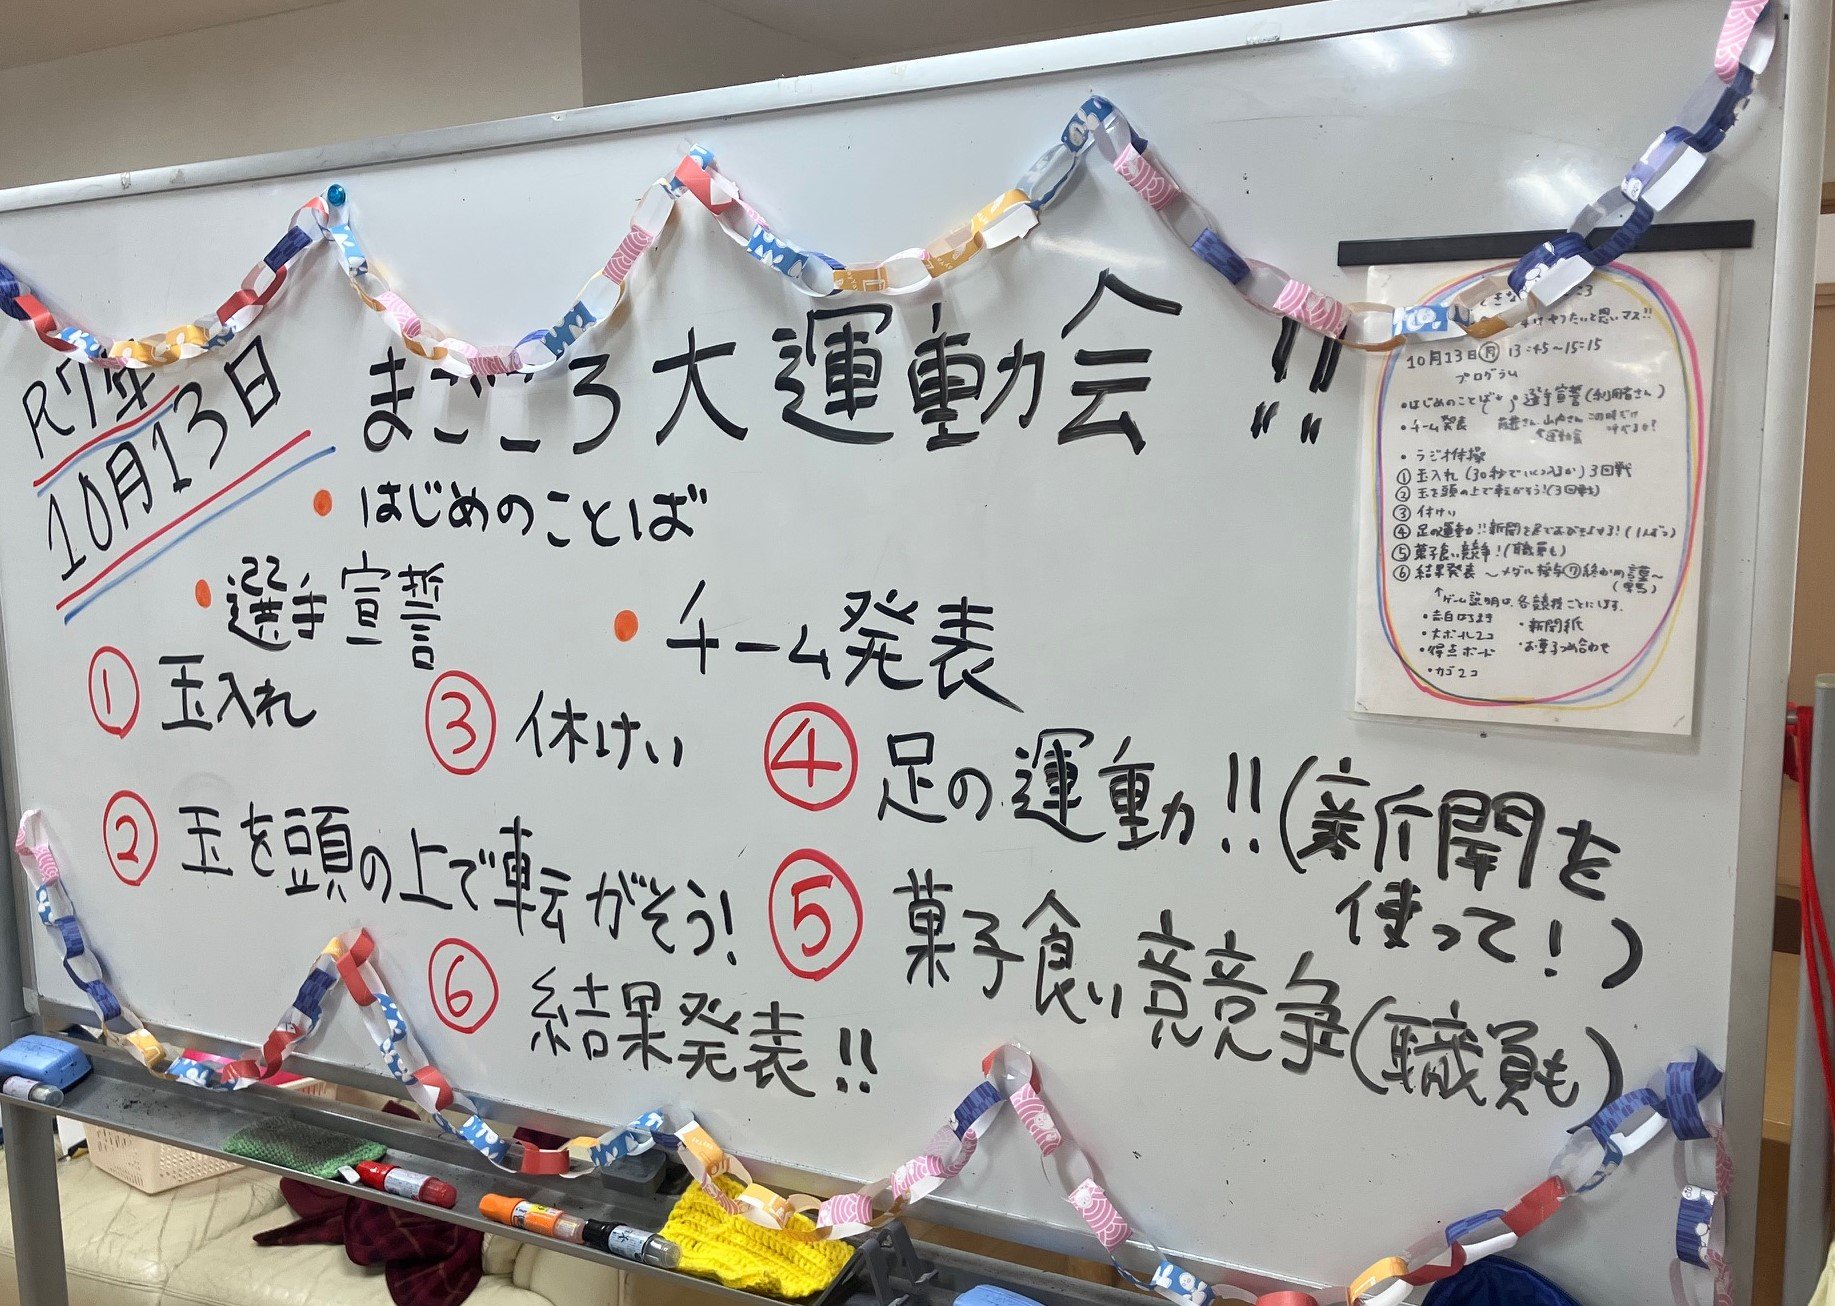 R7年
10月13日
まごころ大運動会!!
はじめのことば
選手宣誓
チーム発表
① 玉入れ
② 玉を頭の上で転がそう!
③ 休けい
④ 足の運動!!(新聞を
使って!)
⑤ 菓子食い競争(職員も)
⑥ 結果発表!!
10月13日(月) 13:45~15:15
プログラム
・はじめのことば 選手宣誓(利用者さん)
・チーム発表
・ラジオ体操
①玉入れ(30秒でいくつ入るか)3回戦
②玉を頭の上で転がそう!(3回戦)
③休けい
④足の運動!!新聞を足で
⑤菓子食い競争!(職員も)
⑥結果発表 ~メダル授与
↑ゲーム説明は、各競技ごとにします。
・大ボール2コ
・得点ボード
・カゴ2コ
・新聞紙
・お菓子つめ合わせ